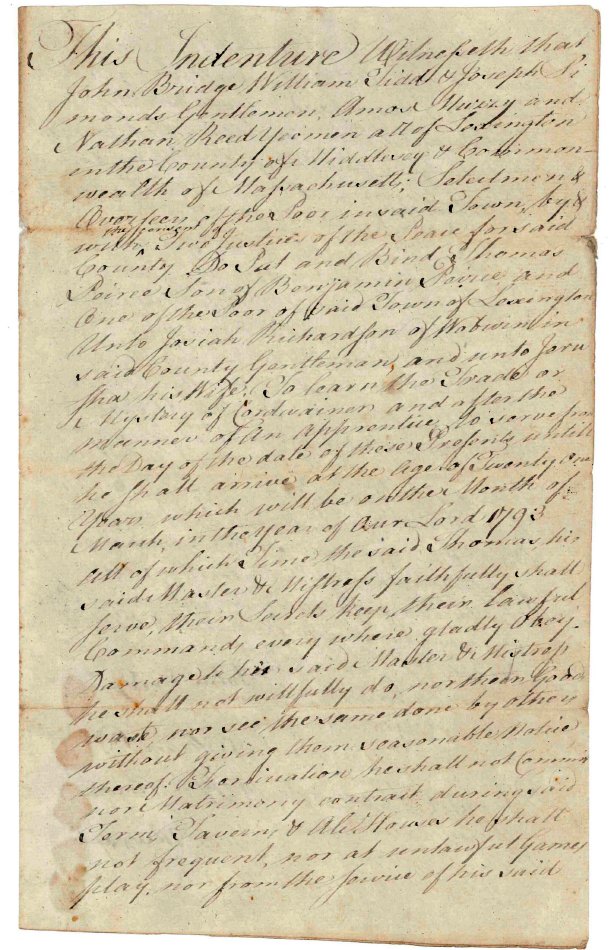 This Indenture Witnesseth that
John Bridge, William Tidd & Joseph Si
monds Gentlemen, Amos Muzzy and
Nathan Reed Yeomen all of Lexington
in the County of Middlesex & Common-
wealth of Massachusetts, Selectmen &
Overseers of the Poor in said Town, by &
with the Assent of Two Justices of the Peace for said
County Do Put and Bind Thomas
Peirce Son of Benjamin Peirce and
One of the Poor of said Town of Lexington
Unto Josiah Richardson of Woburn in
said County Gentleman, and unto Jeru
sha his Wife. To learn the Trade or
Mystery of Cordwainer and after the
manner of An Apprentice to serve from
the Day of the date of these Presents untill
he shall arrive at the Age of Twenty one
Years which will be on the Month of
March, in the Year of Our Lord 1793
All of which Time he said Thomas his
said Master & Mistress faithfully shall
serve, their Secrets keep, their lawful
Commands every where gladly Obey.
Damage to his said Master & Mistress
he shall not willfully do, nor their Goods
waste nor see the same done by others
without giving them seasonable Notice
thereof: Fornication he shall not Commit
nor Matrimony contract during said
Term, Taverns & Ale Houses he shall
not frequent, nor at unlawful Games
play, nor from the Service of his said